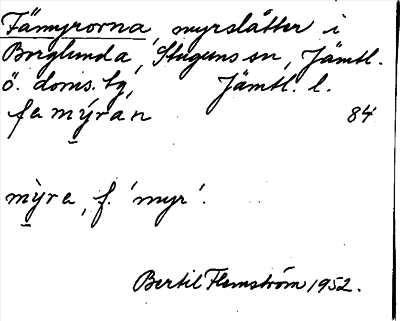 Fämyrorna, myrslåtter i
Borglunda, Stuguns sn, Jämtl.
ö. doms. tg, Jämtl. l.
fa mýran 84
mỳra, f. 'myr'.
Bertil Flemström 1952.